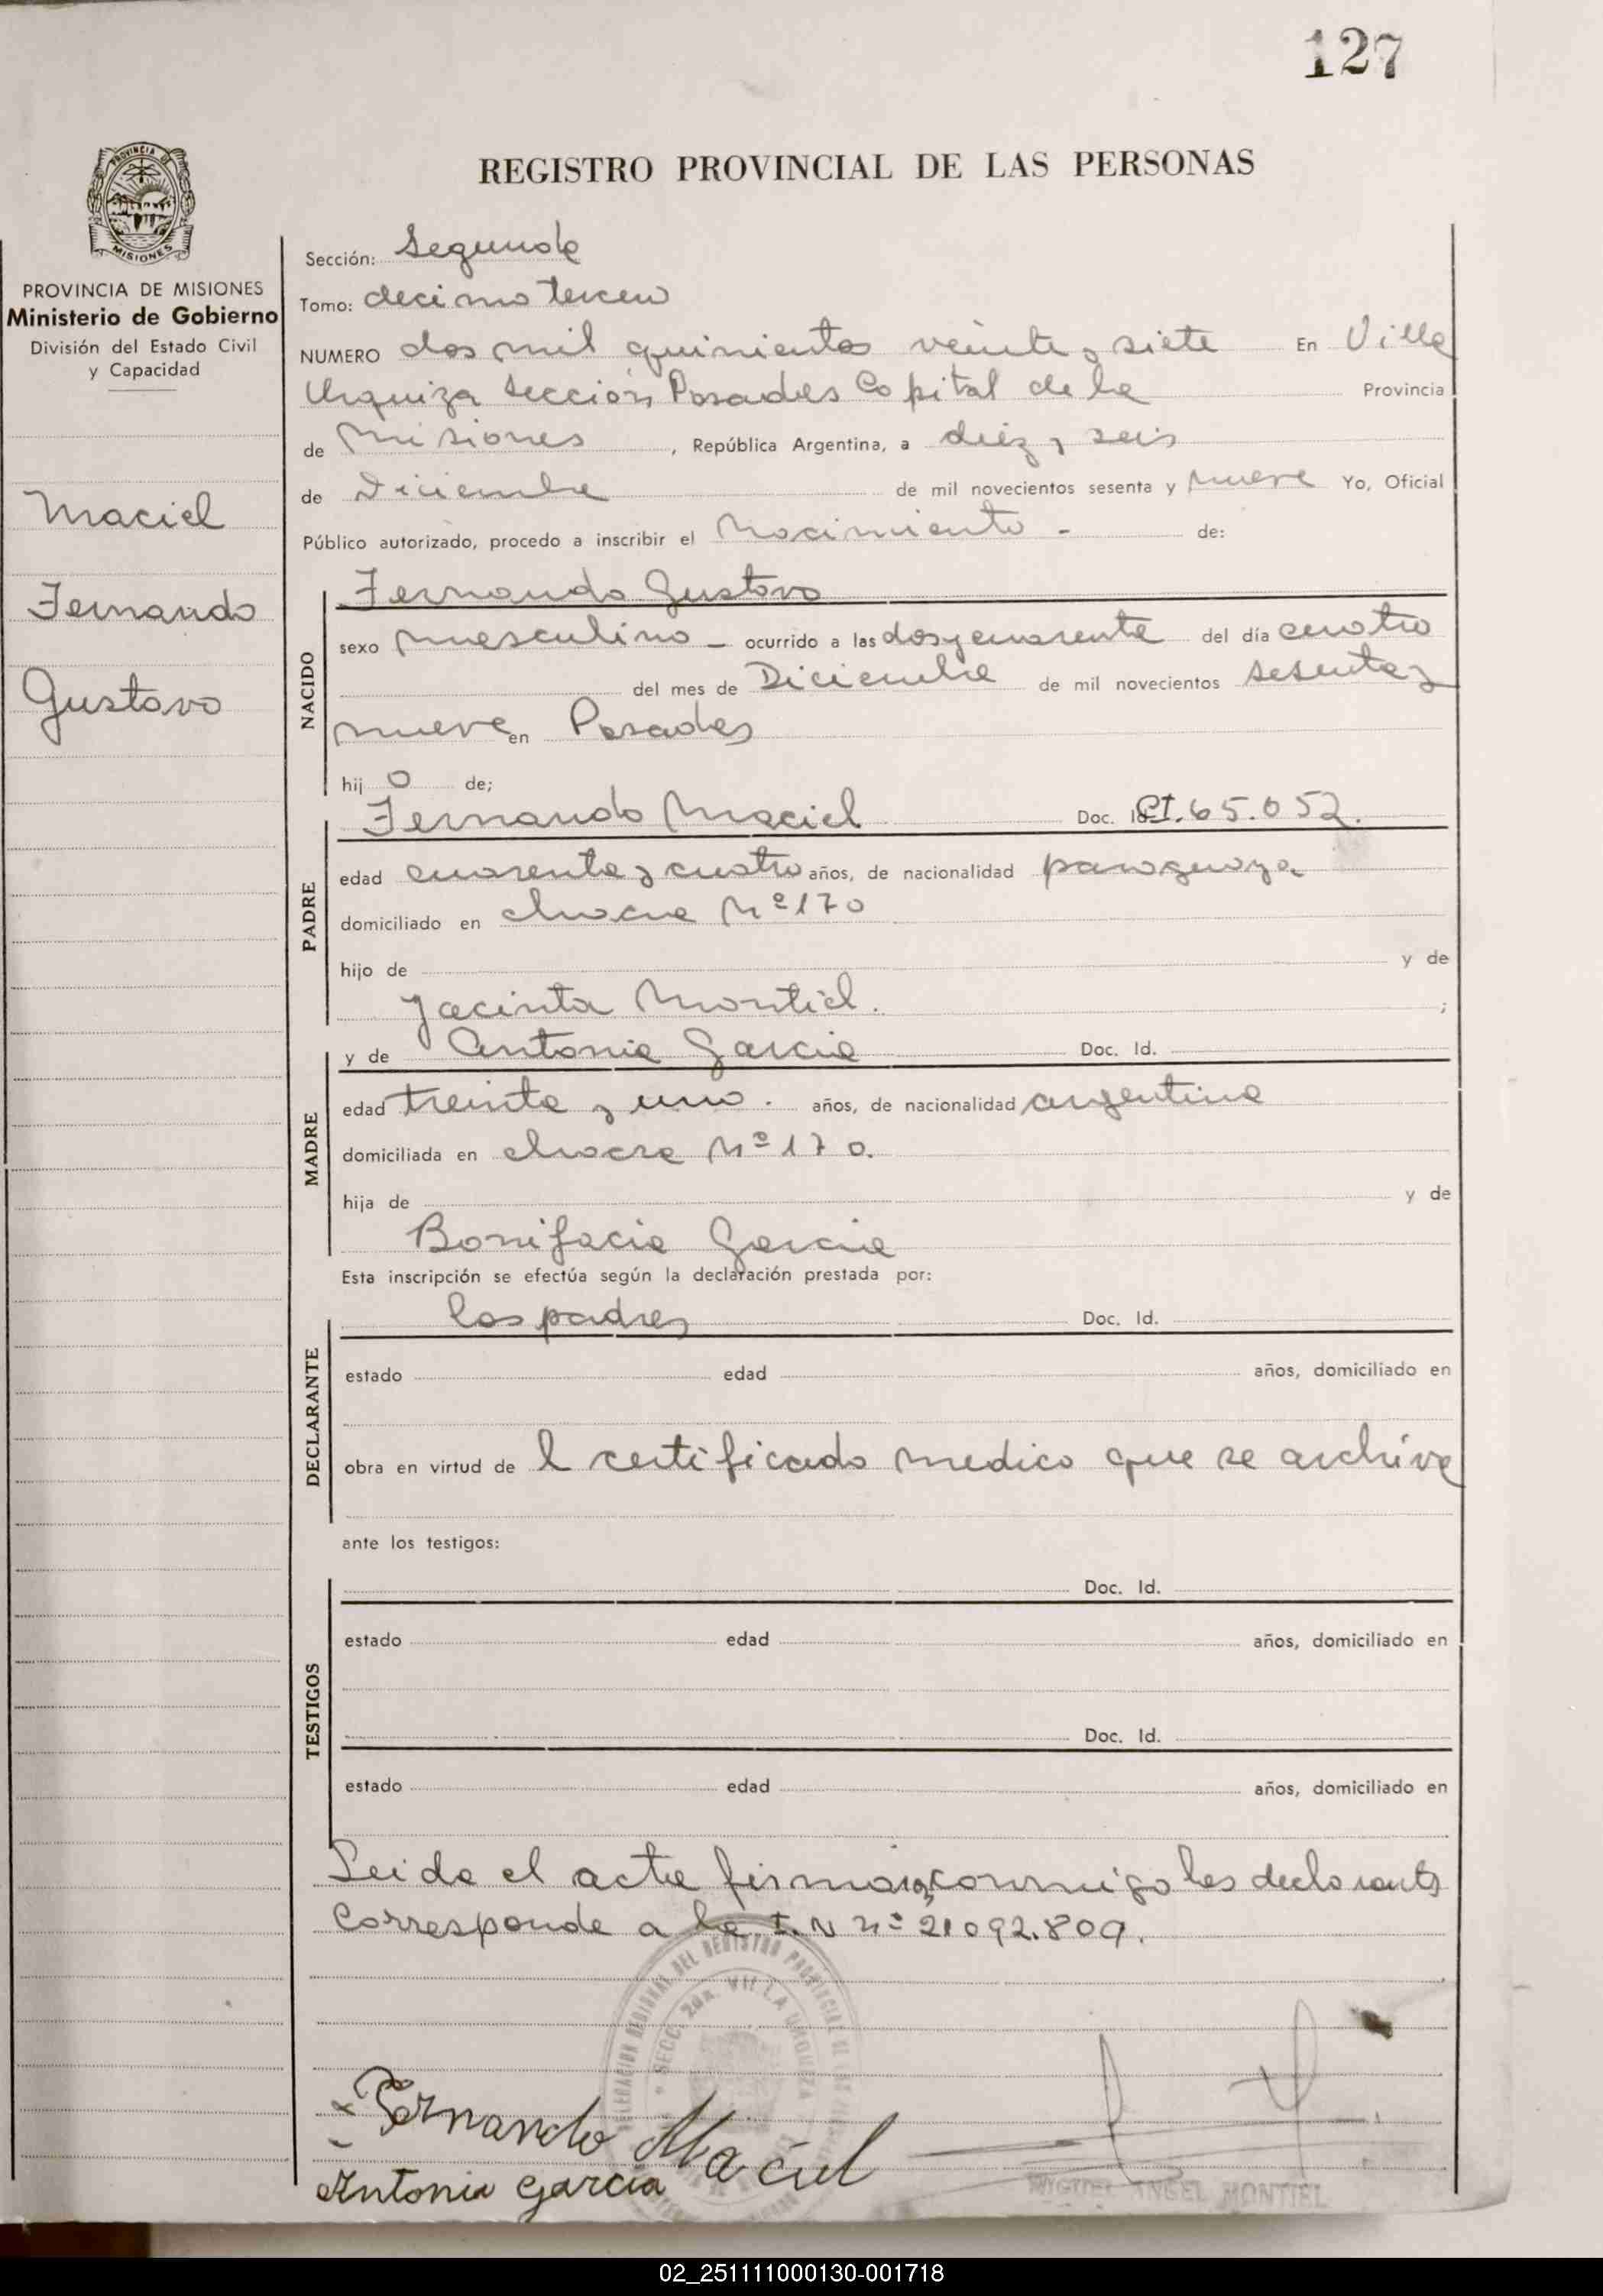 127
REGISTRO PROVINCIAL DE LAS PERSONAS
PROVINCIA DE MISIONES
PROVINCIA DE MISIONES
Ministerio de Gobierno
División del Estado Civil
y Capacidad
Maciel
Fernando
Gustavo
Sección: Segunda
Tomo: decimo tercero
NUMERO dos mil quinientos veinte y siete En Villa
Urquiza Sección Posadas Capital de la Provincia
de Misiones, República Argentina, a diez y seis
de Diciembre de mil novecientos sesenta y nueve Yo, Oficial
Público autorizado, procedo a inscribir el Nacimiento - de:
NACIDO
Fernando Gustavo
sexo masculino - ocurrido a las dos y cuarenta del día cuatro
del mes de Diciembre de mil novecientos sesenta y
nueve en Posadas
hijo de;
PADRE
Fernando Maciel Doc. Id. CI. 65.052.
edad cuarenta y cuatro años, de nacionalidad paraguaya
domiciliado en chacra Nº 170
hijo de y de
Jacinta Montiel. ;
MADRE
y de Antonia Garcia Doc. Id.
edad treinta y uno. años, de nacionalidad argentina
domiciliada en chacra Nº 170.
hija de y de
Bonifacia Garcia
Esta inscripción se efectúa según la declaración prestada por:
DECLARANTE
los padres Doc. Id.
estado edad años, domiciliado en
obra en virtud de l certificado medico que se archiva
ante los testigos:
TESTIGOS
Doc. Id.
estado edad años, domiciliado en
Doc. Id.
estado edad años, domiciliado en
Leida el acta firman conmigo los declarants
Corresponde a la I. N nº 21092.809.
DELEGACION REGIONAL DEL REGISTRO PROVINCIAL DE LAS
SECC. 2da. VILLA URQUIZA
Fernando Maciel
Antonia Garcia
MIGUEL ANGEL MONTIEL
02_251111000130-001718